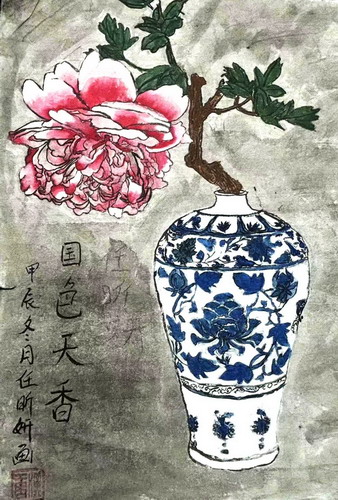 国色天香
甲辰冬月任昕妍画